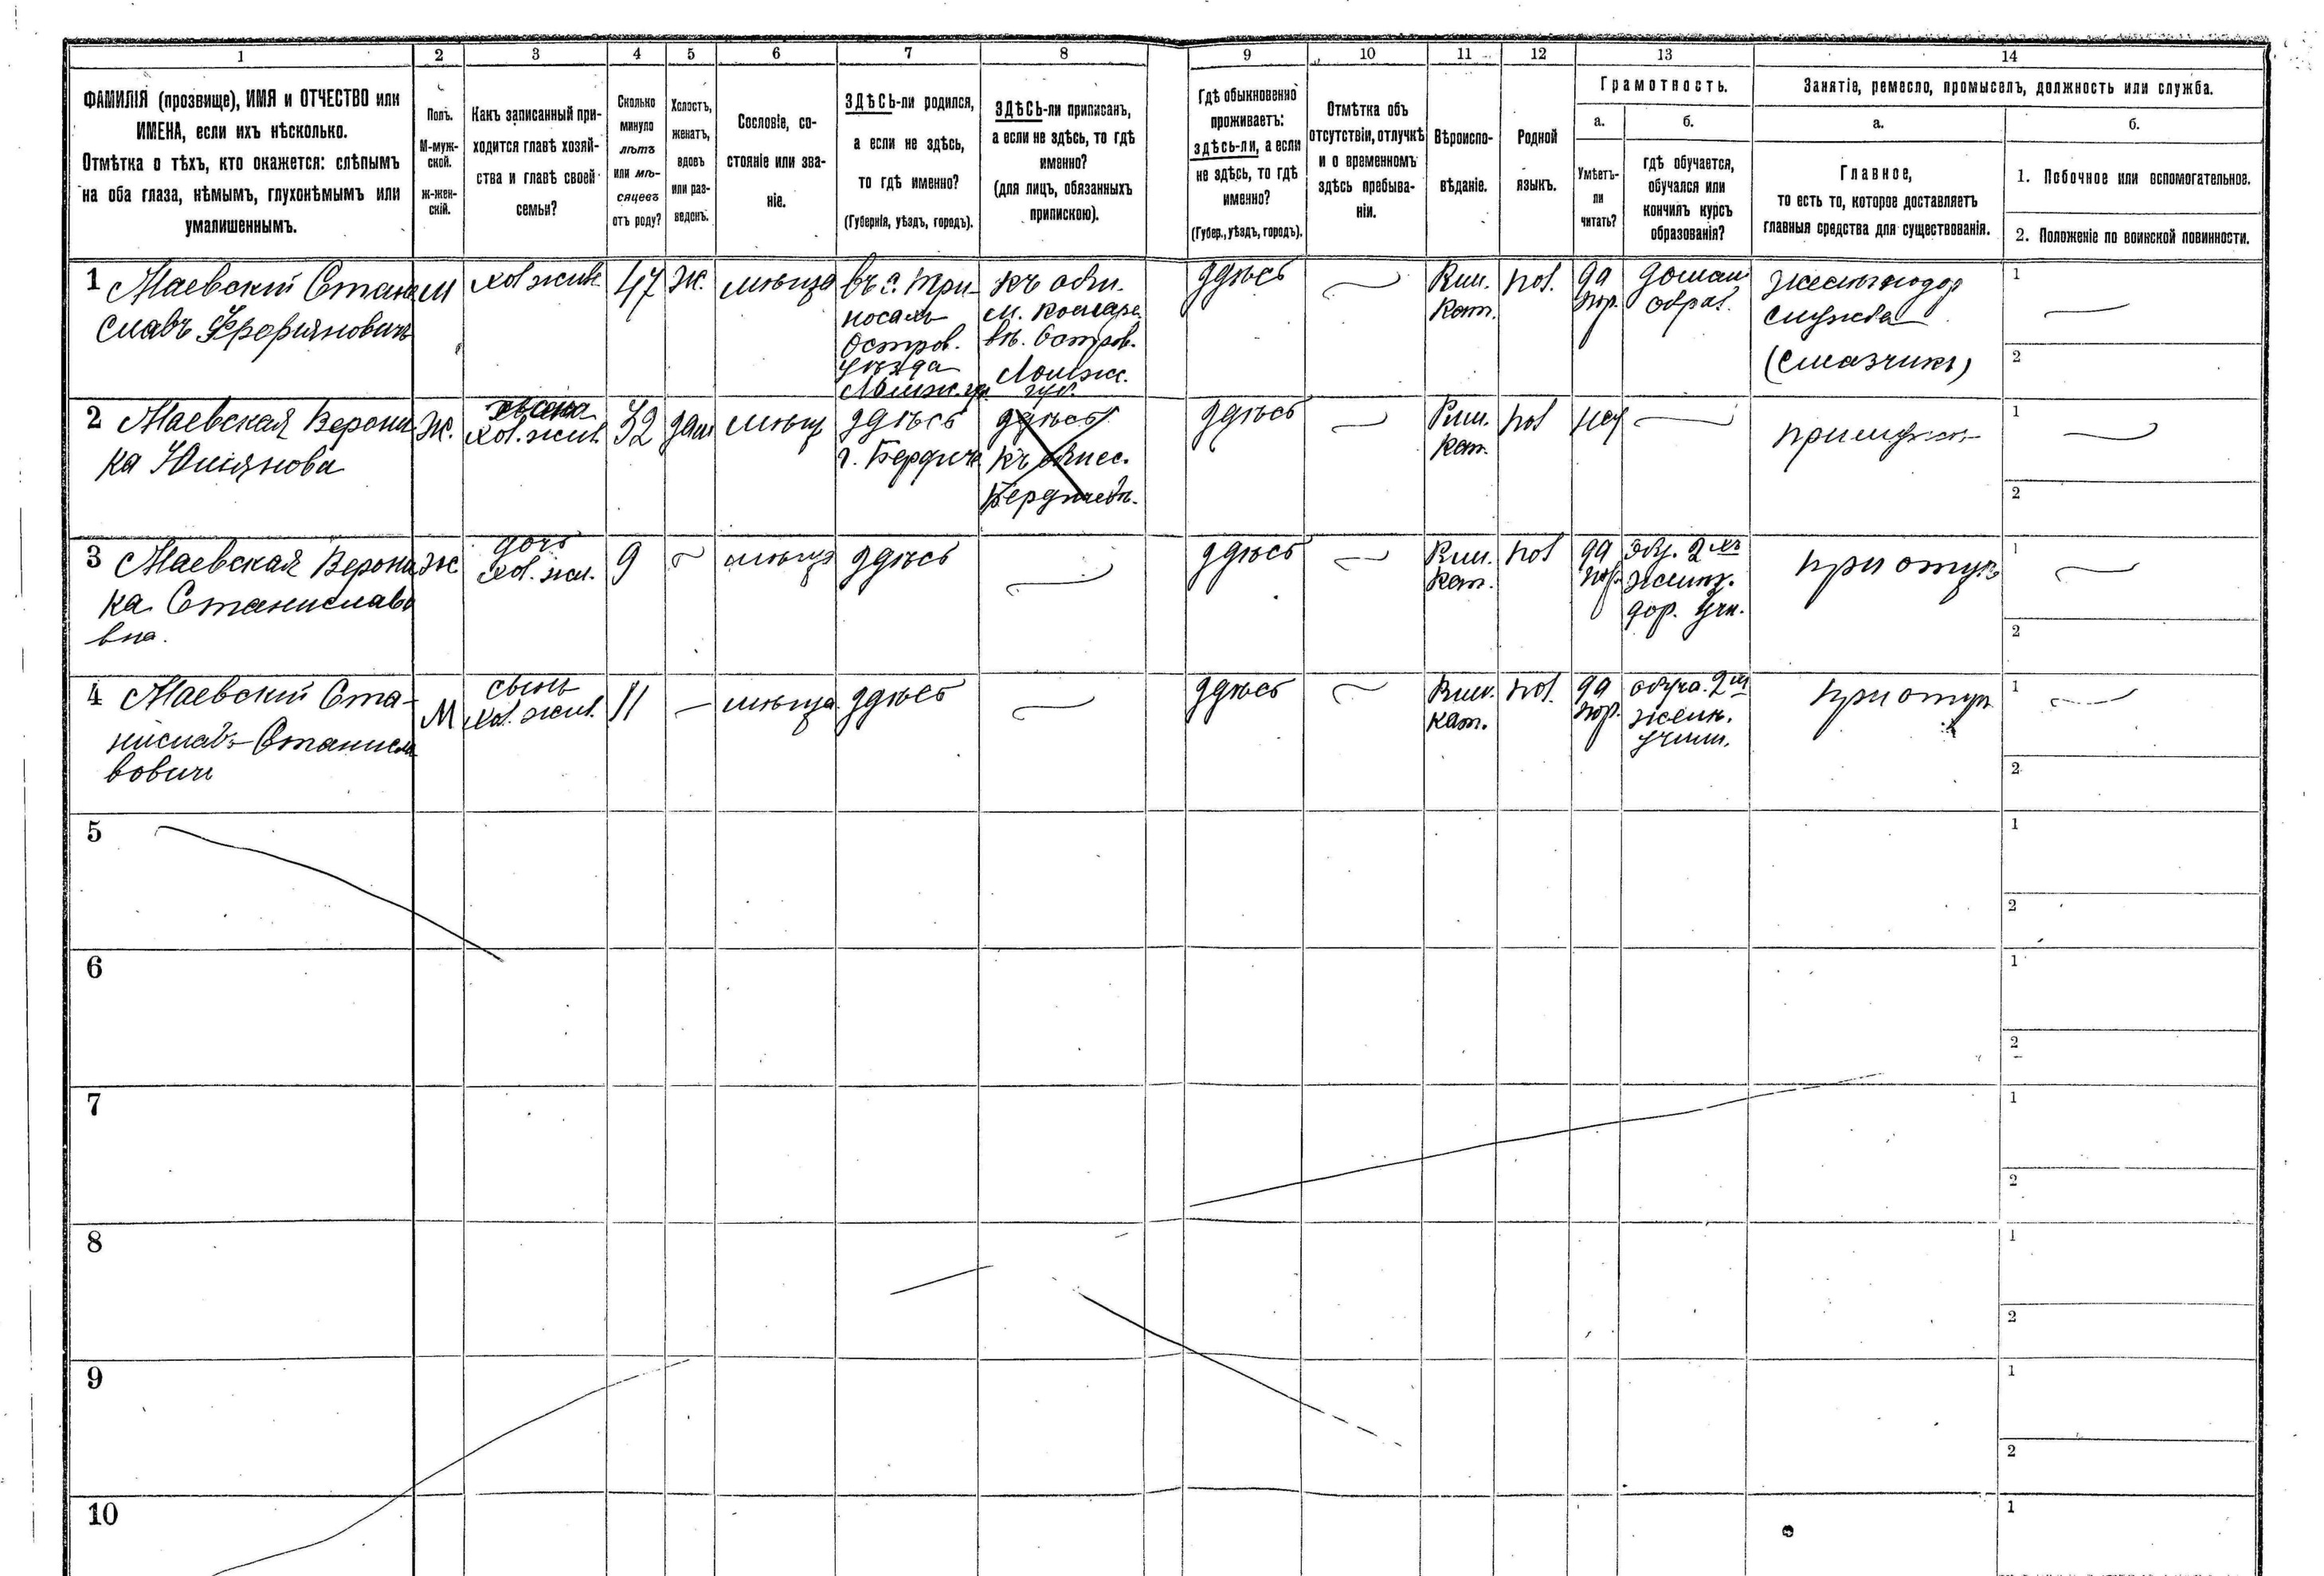 1 2 3 4 5 6 7 8 9 10 11 12 13 14
ФАМИЛІЯ (прозвище), ИМЯ и ОТЧЕСТВО или
ИМЕНА, если ихъ нѣсколько.
Отмѣтка о тѣхъ, кто окажется: слѣпымъ
на оба глаза, нѣмымъ, глухонѣмымъ или
умалишеннымъ.
Полъ.
М-муж-
ской.
ж-жен-
скій.
Какъ записанный при-
ходится главѣ хозяй-
ства и главѣ своей
семьи?
Сколько
минуло
лѣтъ
или мѣ-
сяцевъ
отъ роду?
Холостъ,
женатъ,
вдовъ
или раз-
веденъ.
Сословіе, со-
стояніе или зва-
ніе.
ЗДѢСЬ-ли родился,
а если не здѣсь,
то гдѣ именно?
(Губернія, уѣздъ, городъ).
ЗДѢСЬ-ли приписанъ,
а если не здѣсь, то гдѣ
именно?
(для лицъ, обязанныхъ
припискою).
Гдѣ обыкновенно
проживаетъ:
здѣсь-ли, а если
не здѣсь, то гдѣ
именно?
(Губер., уѣздъ, городъ).
Отмѣтка объ
отсутствіи, отлучкѣ
и о временномъ
здѣсь пребыва-
ніи.
Вѣроиспо-
вѣданіе.
Родной
языкъ.
Грамотность.
а.
Умѣетъ-
ли
читать?
б.
гдѣ обучается,
обучался или
кончилъ курсъ
образованія?
Занятіе, ремесло, промыселъ, должность или служба.
а.
Главное,
то есть то, которое доставляетъ
главныя средства для существованія.
б.
1. Побочное или вспомогательное.
2. Положеніе по воинской повинности.
1 Маевский Стани
славъ
м
47
ж.
Остров.
уѣзда
Остров.
Ломж.
губ.
здѣсь
Рим.
Кат.
пол.
да
домаш
образ.
служба
(смазчикъ)
1
2
2 Маевская Верони
ка
ж.
жена
32
зам
здѣсь
г. Бердич
здѣсь
здѣсь
Рим.
Кат.
пол
нет
1
2
3 Маевская Верони
ка Станиславо
вна.
ж
дочь
9
здѣсь
здѣсь
Рим.
Кат.
пол
да
при отцѣ
1
2
4 Маевский Ста-
ниславъ Станисла
вович
М
сынъ
11
здѣсь
здѣсь
Рим.
кат.
пол.
да
при отцѣ
1
2
5
1
2
6
1
2
7
1
2
8
1
2
9
1
2
10
1